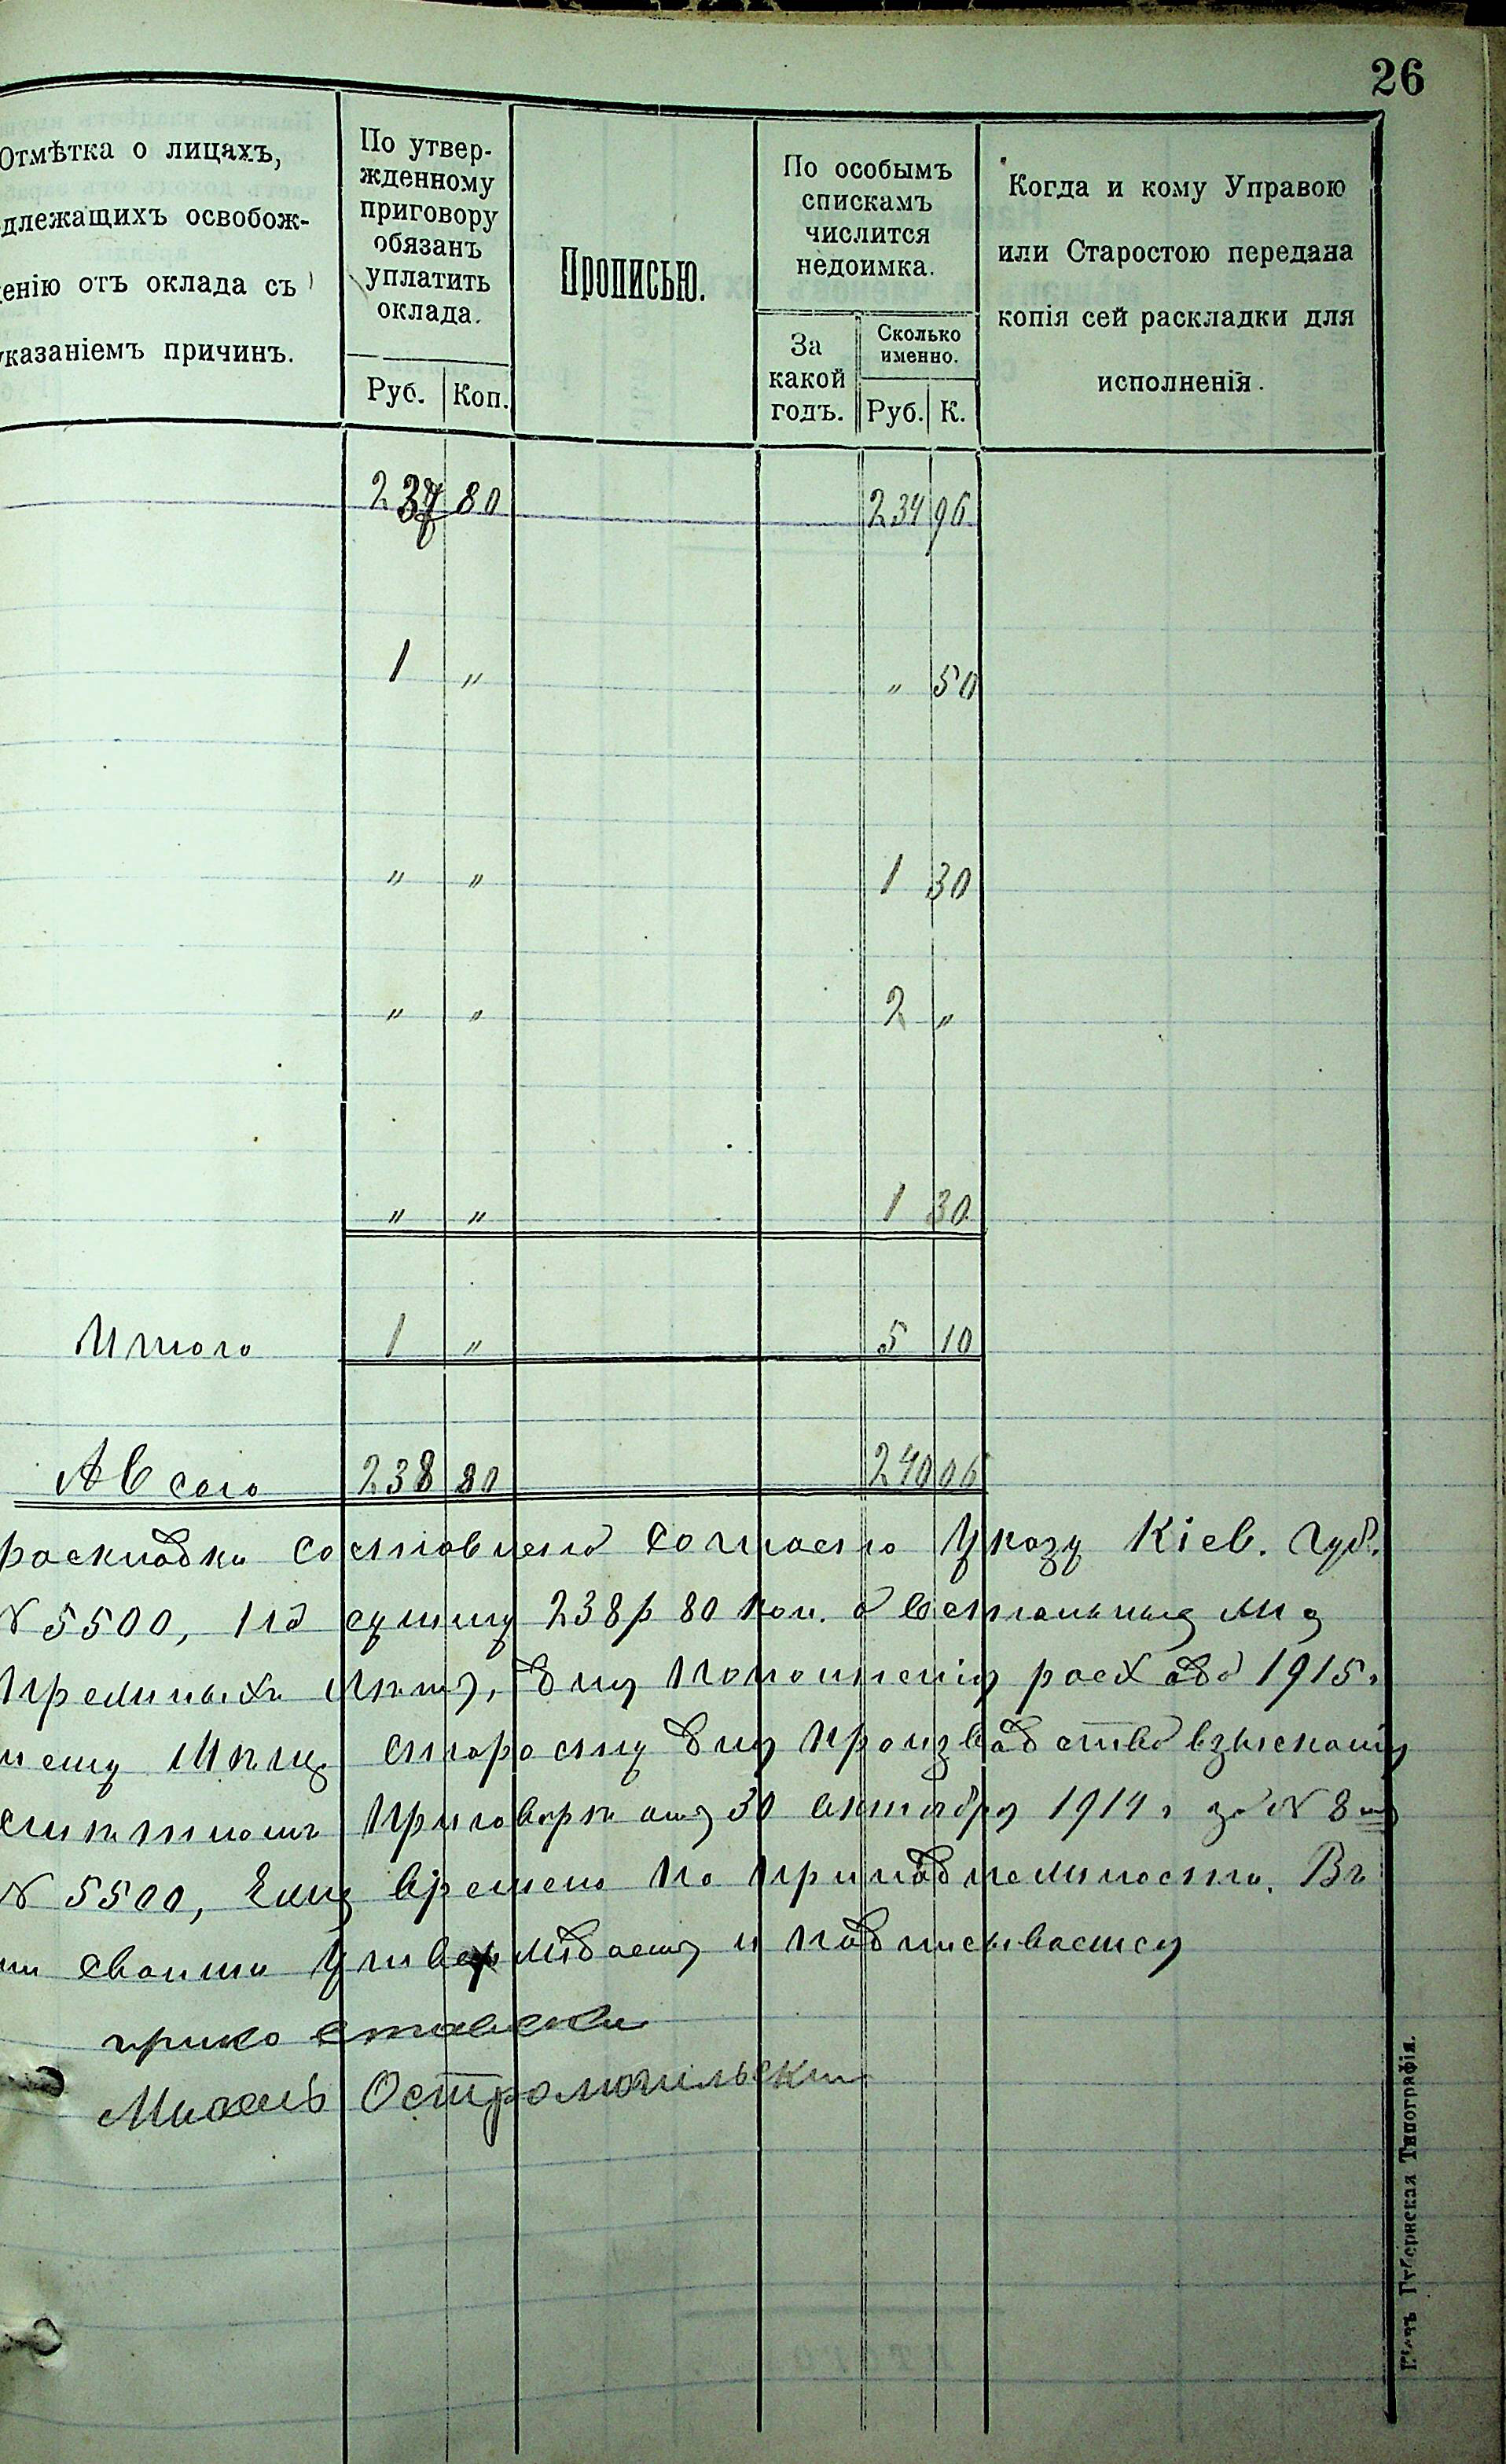 26
Отмѣтка о лицахъ,
длежащихъ освобож-
енію отъ оклада съ
указаніемъ причинъ.
По утвер-
жденному
приговору
обязанъ
уплатить
оклада.
Руб. Коп.
Прописью.
По особымъ
спискамъ
числится
недоимка.
За
какой
годъ.
Сколько
именно.
Руб. К.
Когда и кому Управою
или Старостою передана
копія сей раскладки для
исполненія.
237 80 234 96
1 " " 50
" " 1 30
" " 2 "
" " 1 30
Итого 1 " 5 10
А всего 238 80 240 06
раскладка составлена согласно Указу Кіев. Губ.
№ 5500, на сумму 238 р 80 коп. а
лѣтъ, для пополненія расхода 1915 г
старосту для производства взысканія
Приговоръ отъ 30 октября 1914 г за № 8
№ 5500, времено по принадлежности. Въ
своими утверждаетъ и подписывается
Остромогильскій
Кіевъ Губернская Типографія.